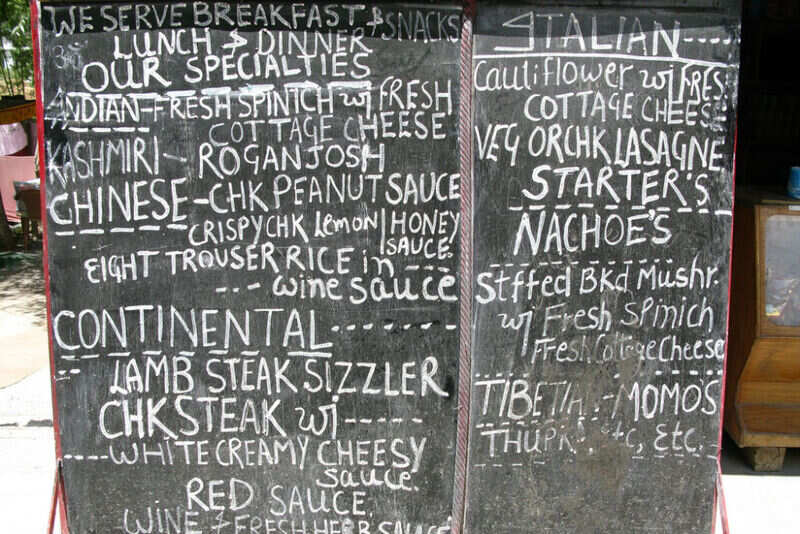 WE SERVE BREAKFAST & SNACKS
LUNCH & DINNER
OUR SPECIALTIES
INDIAN-FRESH SPINICH w/ FRESH
COTTAGE CHEESE
KASHMIRI - ROGANJOSH
CHINESE-CHK PEANUT SAUCE
CRISPY CHK Lemon/HONEY
SAUCE.
EIGHT TROUSER RICE in ---
--- wine sauce
CONTINENTAL -------
-- LAMB STEAK SIZZLER
CHK STEAK w/ -----
----WHITE CREAMY CHEESY
sauce.
RED SAUCE.
WINE & FRESH HERB SAUCE
ITALIAN----
Cauliflower w/ FRES
COTTAGE CHEESE
VEG OR CHK LASAGNE
STARTER'S
NACHOE'S
Stffed BKd Mushr.
w/ Fresh Spinich
Fresh Cottage Cheese
MOMO'S
etc, Etc.